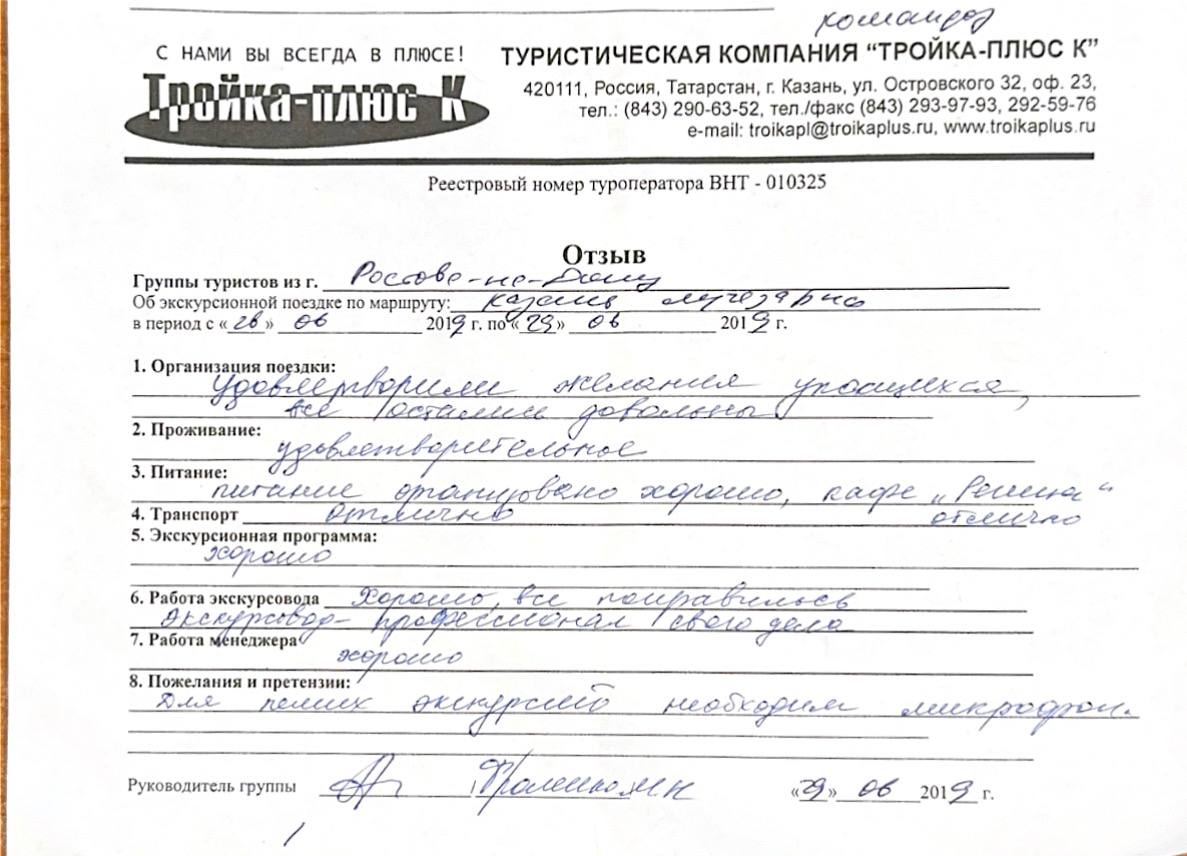 командоз
С НАМИ ВЫ ВСЕГДА В ПЛЮСЕ!
Тройка-плюс К
ТУРИСТИЧЕСКАЯ КОМПАНИЯ “ТРОЙКА-ПЛЮС К”
420111, Россия, Татарстан, г. Казань, ул. Островского 32, оф. 23,
тел.: (843) 290-63-52, тел./факс (843) 293-97-93, 292-59-76
e-mail: troikapl@troikaplus.ru, www.troikaplus.ru
Реестровый номер туроператора ВНТ - 010325
Отзыв
Группы туристов из г. Ростова-на-Дону
Об экскурсионной поездке по маршруту: Казань лучезарно
в период с «26» 06 2019 г. по «29» 06 2019 г.
1. Организация поездки:
Удовлетворили желания учащихся,
все остались довольны
2. Проживание:
удовлетворительное
3. Питание:
питание организовано хорошо, кафе „Регина“
отлично
4. Транспорт отлично
5. Экскурсионная программа:
хорошо
6. Работа экскурсовода Хорошо, все понравилось
Экскурсовод - профессионал своего дела
7. Работа менеджера
хорошо
8. Пожелания и претензии:
Для пеших экскурсий необходим микрофон.
Руководитель группы «29» 06 2019 г.